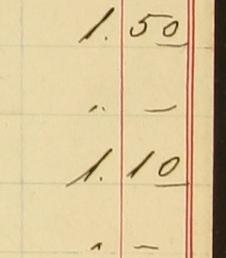 1. 50
" —
1. 10
" —